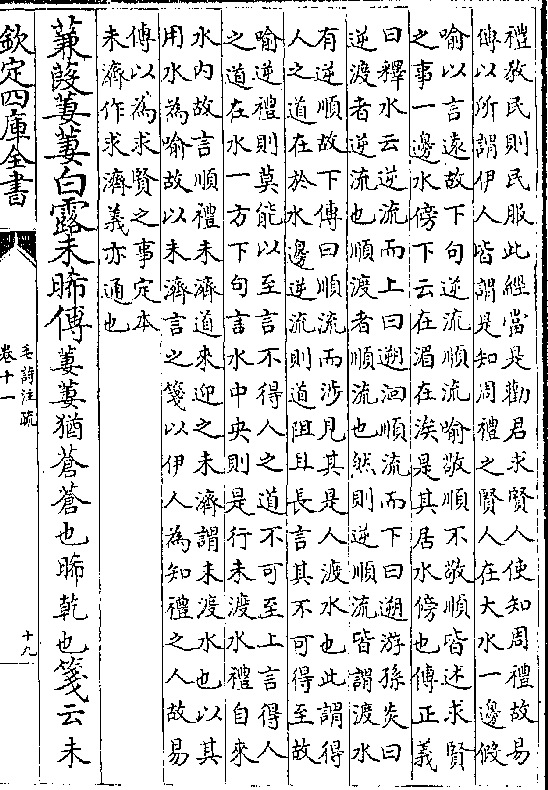 禮敎民則民服此經當是勸君求賢人使知周禮故易
傳以所謂伊人皆謂是知周禮之賢人在大水一邊假
喻以言遠故下句逆流順流喻敬順不敬順皆述求賢
之事一邊水傍下云在湄在涘是其居水傍也傳正義
曰釋水云逆流而上曰遡洄順流而下曰遡游孫炎曰
逆渡者逆流也順渡者順流也然則逆順流皆謂渡水
有逆順故下傳曰順流而涉見其是人渡水也此謂得
人之道在於水邊逆流則道阻且長言其不可得至故
喻逆禮則莫能以至言不得人之道不可至上言得人
之道在水一方下句言水中央則是行未渡水禮自來
水內故言順禮未濟道來迎之未濟謂未渡水也以其
用水為喻故以未濟言之箋以伊人為知禮之人故易
傳以為求賢之事定本
未濟作求濟義亦通也
蒹葭萋萋白露未晞傳萋萋猶蒼蒼也晞乾也箋云未
欽定四庫全書
毛詩注疏
卷十一
十九